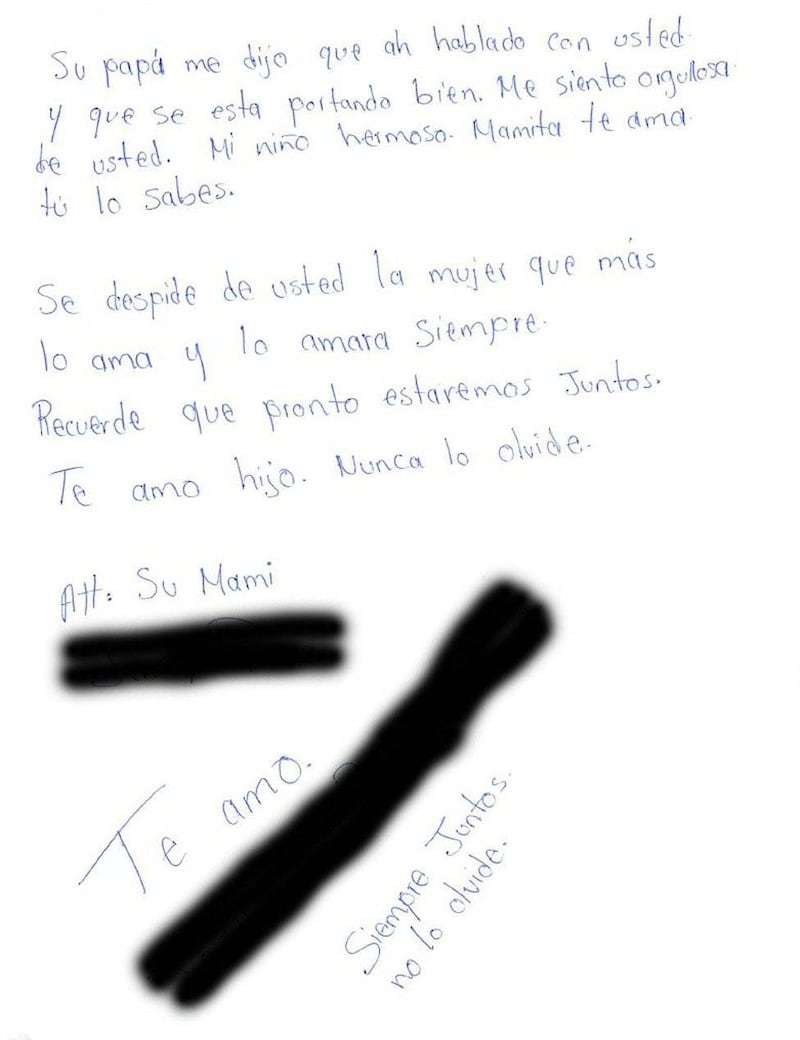 Su papá me dijo que ah hablado con usted
y que se esta portando bien. Me siento orgullosa
de usted. Mi niño hermoso. Mamita te ama.
tú lo sabes.
Se despide de usted la mujer que más
lo ama y lo amara siempre.
Recuerde que pronto estaremos Juntos.
Te amo hijo. Nunca lo olvide.
Att: Su Mami
Te amo.
Siempre Juntos.
no lo olvide.